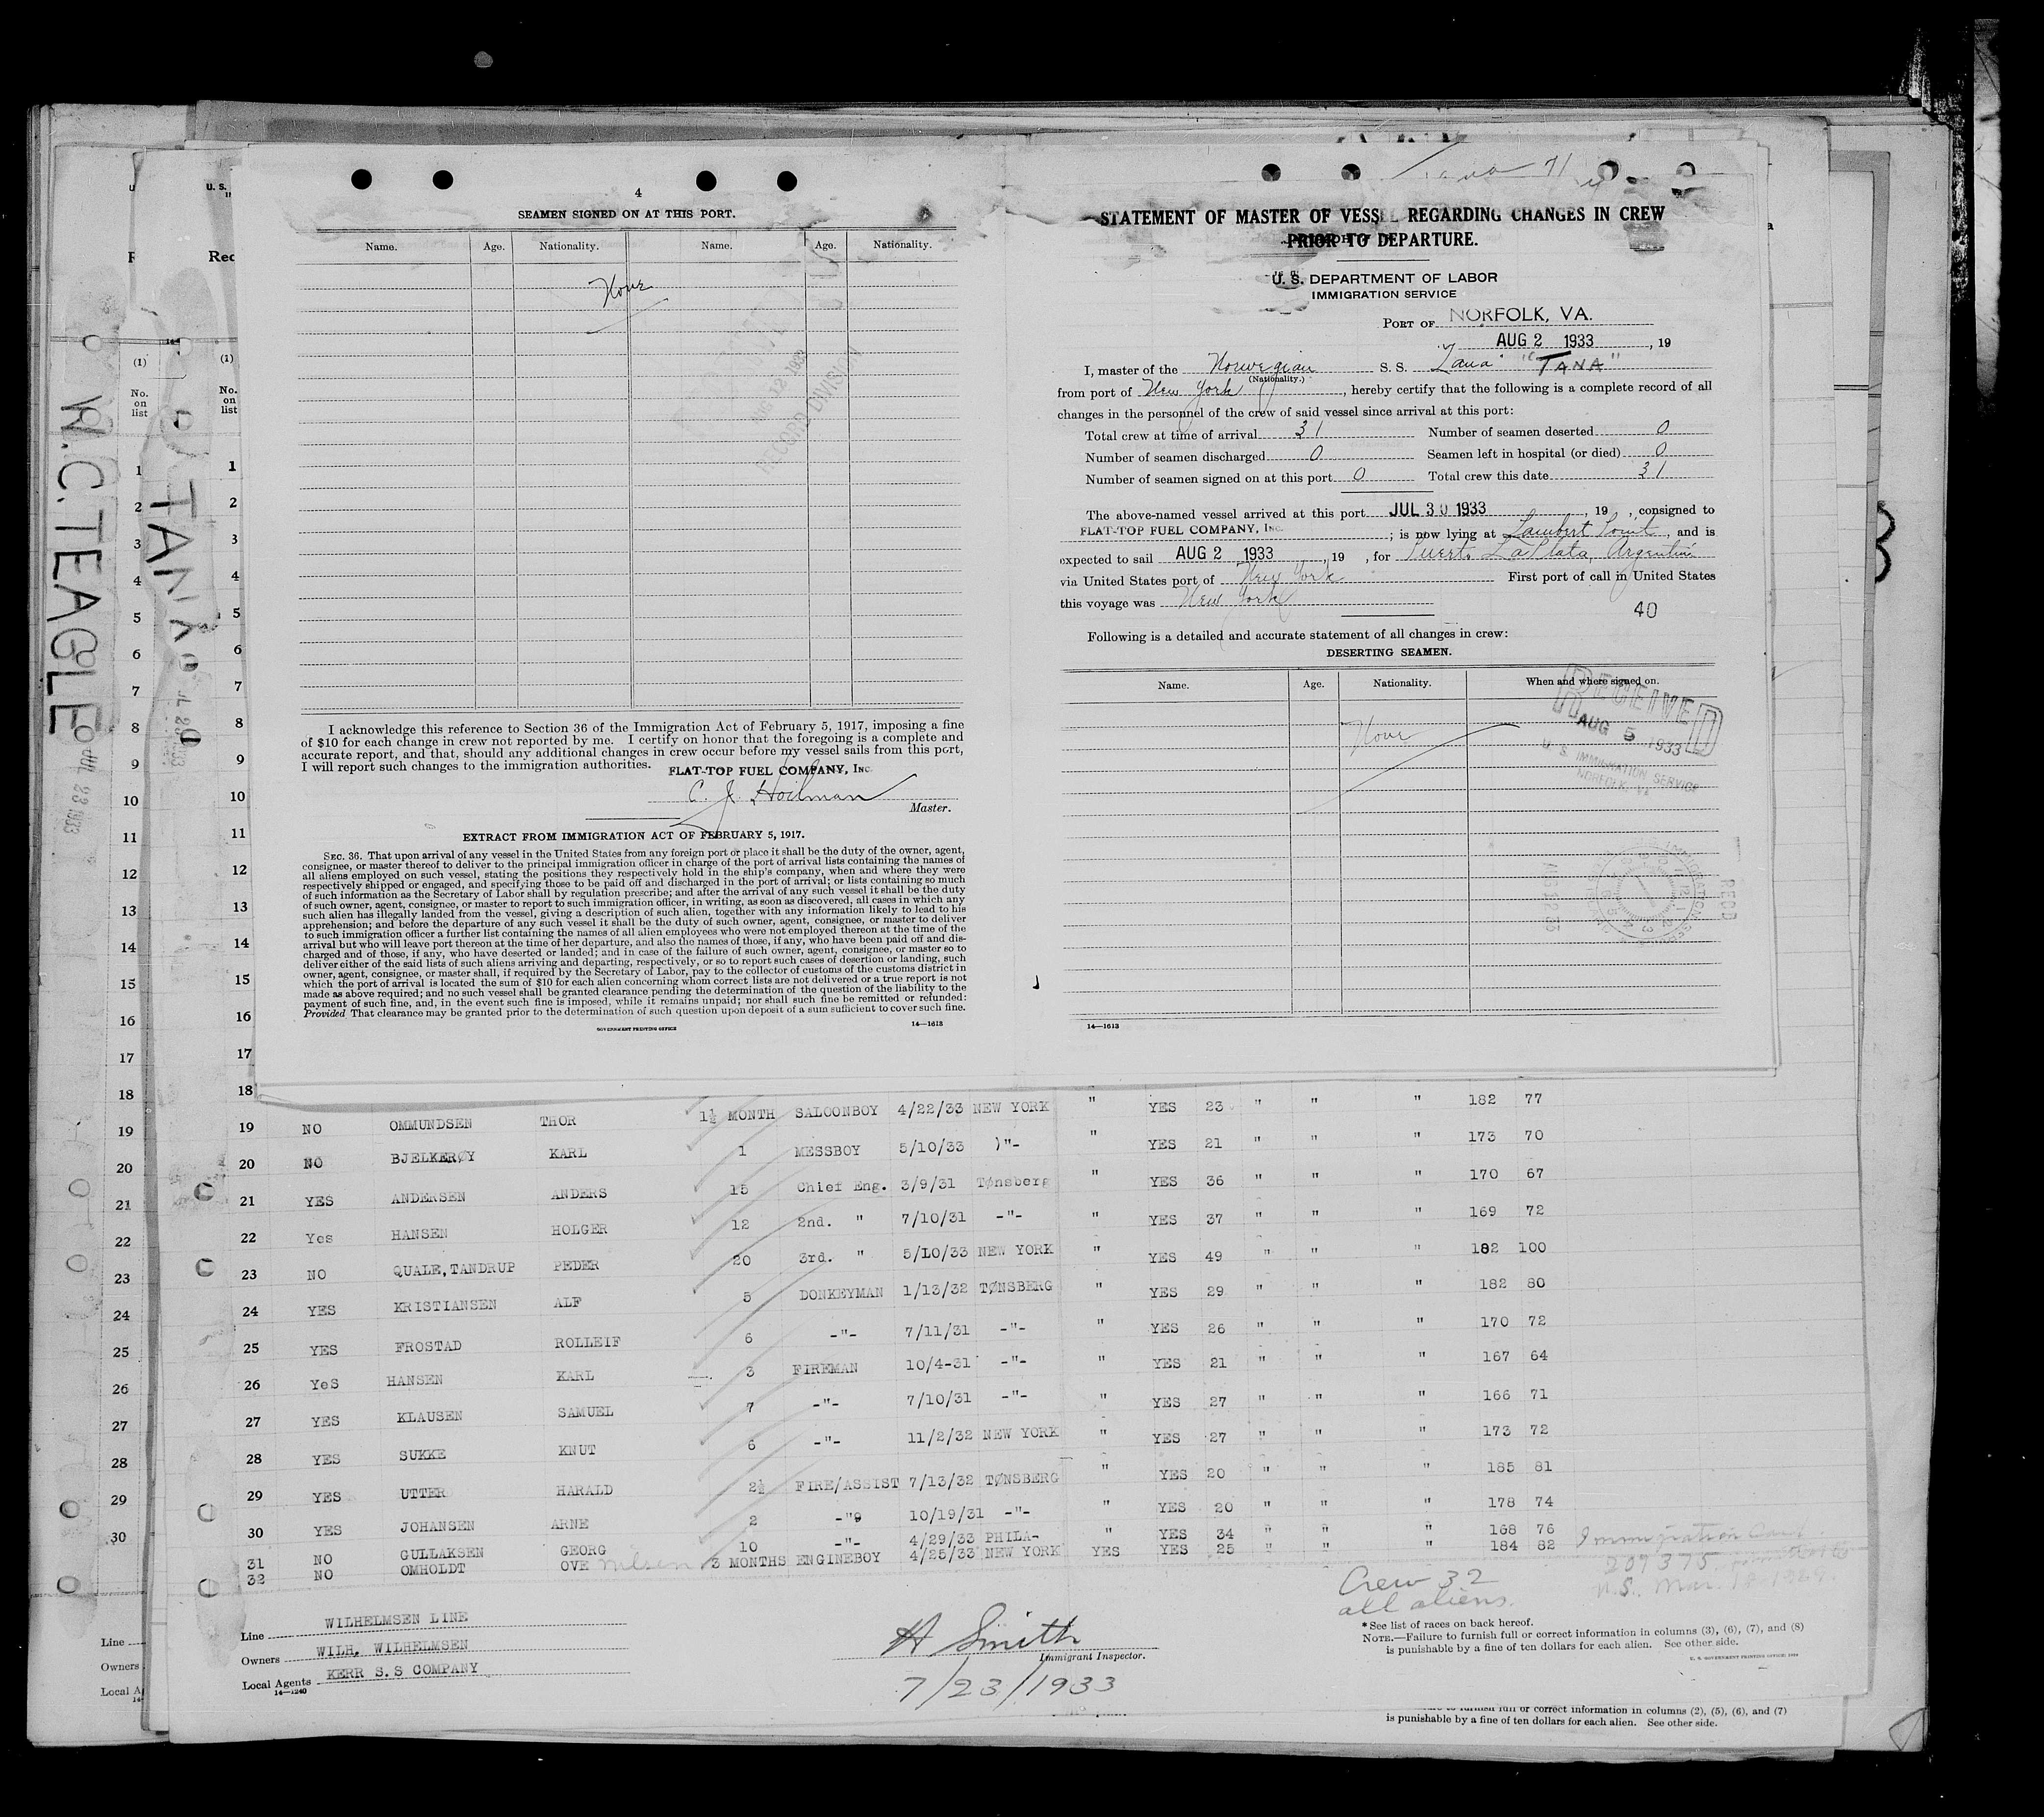 4
SEAMEN SIGNED ON AT THIS PORT.
Name. Age. Nationality. Name. Age. Nationality.
None
AUG 12 1933
RECORD DIVISION
I acknowledge this reference to Section 36 of the Immigration Act of February 5, 1917, imposing a fine
of $10 for each change in crew not reported by me. I certify on honor that the foregoing is a complete and
accurate report, and that, should any additional changes in crew occur before my vessel sails from this port,
I will report such changes to the immigration authorities.
FLAT-TOP FUEL COMPANY, Inc.
C. J. Hoilman
Master.
EXTRACT FROM IMMIGRATION ACT OF FEBRUARY 5, 1917.
SEC. 36. That upon arrival of any vessel in the United States from any foreign port or place it shall be the duty of the owner, agent,
consignee, or master thereof to deliver to the principal immigration officer in charge of the port of arrival lists containing the names of
all aliens employed on such vessel, stating the positions they respectively hold in the ship's company, when and where they were
respectively shipped or engaged, and specifying those to be paid off and discharged in the port of arrival; or lists containing so much
of such information as the Secretary of Labor shall by regulation prescribe; and after the arrival of any such vessel it shall be the duty
of such owner, agent, consignee, or master to report to such immigration officer, in writing, as soon as discovered, all cases in which any
such alien has illegally landed from the vessel, giving a description of such alien, together with any information likely to lead to his
apprehension; and before the departure of any such vessel it shall be the duty of such owner, agent, consignee, or master to deliver
to such immigration officer a further list containing the names of all alien employees who were not employed thereon at the time of the
arrival but who will leave port thereon at the time of her departure, and also the names of those, if any, who have been paid off and dis-
charged and of those, if any, who have deserted or landed; and in case of the failure of such owner, agent, consignee, or master so to
deliver either of the said lists of such aliens arriving and departing, respectively, or so to report such cases of desertion or landing, such
owner, agent, consignee, or master shall, if required by the Secretary of Labor, pay to the collector of customs of the customs district in
which the port of arrival is located the sum of $10 for each alien concerning whom correct lists are not delivered or a true report is not
made as above required; and no such vessel shall be granted clearance pending the determination of the question of the liability to the
payment of such fine, and, in the event such fine is imposed, while it remains unpaid; nor shall such fine be remitted or refunded:
Provided That clearance may be granted prior to the determination of such question upon deposit of a sum sufficient to cover such fine.
GOVERNMENT PRINTING OFFICE 14—1613
STATEMENT OF MASTER OF VESSEL REGARDING CHANGES IN CREW
PRIOR TO DEPARTURE.
U. S. DEPARTMENT OF LABOR
IMMIGRATION SERVICE
PORT OF NORFOLK, VA.
AUG 2 1933, 19
I, master of the Norwegian S. S. Tana "TANA"
(Nationality.)
from port of New York, hereby certify that the following is a complete record of all
changes in the personnel of the crew of said vessel since arrival at this port:
Total crew at time of arrival 31 Number of seamen deserted 0
Number of seamen discharged 0 Seamen left in hospital (or died) 0
Number of seamen signed on at this port 0 Total crew this date 31
The above-named vessel arrived at this port JUL 30 1933, 19 , consigned to
FLAT-TOP FUEL COMPANY, Inc. ; is now lying at Lambert Point, and is
expected to sail AUG 2 1933, 19 , for Puerto La Plata, Argentine
via United States port of New York First port of call in United States
this voyage was New York
40
Following is a detailed and accurate statement of all changes in crew:
DESERTING SEAMEN.
Name. Age. Nationality. When and where signed on.
None
RECEIVED
AUG 5 1933
U. S. IMMIGRATION SERVICE
NORFOLK, VA
REC'D
14—1613
W.C. TEAGLE
JUL 23 1933
TANA
(1)
No.
on
list
18
19 NO OMMUNDSEN THOR 1½ MONTH SALOONBOY 4/22/33 NEW YORK " YES 23 " " " 182 77
20 NO BJELKERØY KARL 1 MESSBOY 5/10/33 )"- " YES 21 " " " 173 70
21 YES ANDERSEN ANDERS 15 Chief Eng. 3/9/31 Tønsberg " YES 36 " " " 170 67
22 Yes HANSEN HOLGER 12 2nd. " 7/10/31 -"- " YES 37 " " " 169 72
23 NO QUALE,TANDRUP PEDER 20 3rd. " 5/10/33 NEW YORK " YES 49 " " " 182 100
24 YES KRISTIANSEN ALF 5 DONKEYMAN 1/13/32 TØNSBERG " YES 29 " " " 182 80
25 YES FROSTAD ROLLEIF 6 -"- 7/11/31 -"- " YES 26 " " " 170 72
26 YeS HANSEN KARL 3 FIREMAN 10/4-31 -"- " YES 21 " " " 167 64
27 YES KLAUSEN SAMUEL 7 -"- 7/10/31 -"- " YES 27 " " " 166 71
28 YES SUKKE KNUT 6 -"- 11/2/32 NEW YORK " YES 27 " " " 173 72
29 YES UTTER HARALD 2½ FIRE/ASSIST 7/13/32 TØNSBERG " YES 20 " " " 185 81
30 YES JOHANSEN ARNE 2 -"9 10/19/31 -"- " YES 20 " " " 178 74
31 NO GULLAKSEN GEORG 10 -"- 4/29/33 PHILA- " YES 34 " " " 168 76
32 NO OMHOLDT OVE Nilsen 3 MONTHS ENGINEBOY 4/25/33 NEW YORK YES YES 25 " " " 184 82
Immigration Card.
207375
Crew 32
all aliens.
Line WILHELMSEN LINE
Owners WILH. WILHELMSEN
Local Agents KERR S.S COMPANY
14—1240
H Smith
Immigrant Inspector.
7/23/1933
*See list of races on back hereof.
NOTE.—Failure to furnish full or correct information in columns (3), (6), (7), and (8)
is punishable by a fine of ten dollars for each alien. See other side.
full or correct information in columns (2), (5), (6), and (7)
is punishable by a fine of ten dollars for each alien. See other side.
Line
Owners
Local A